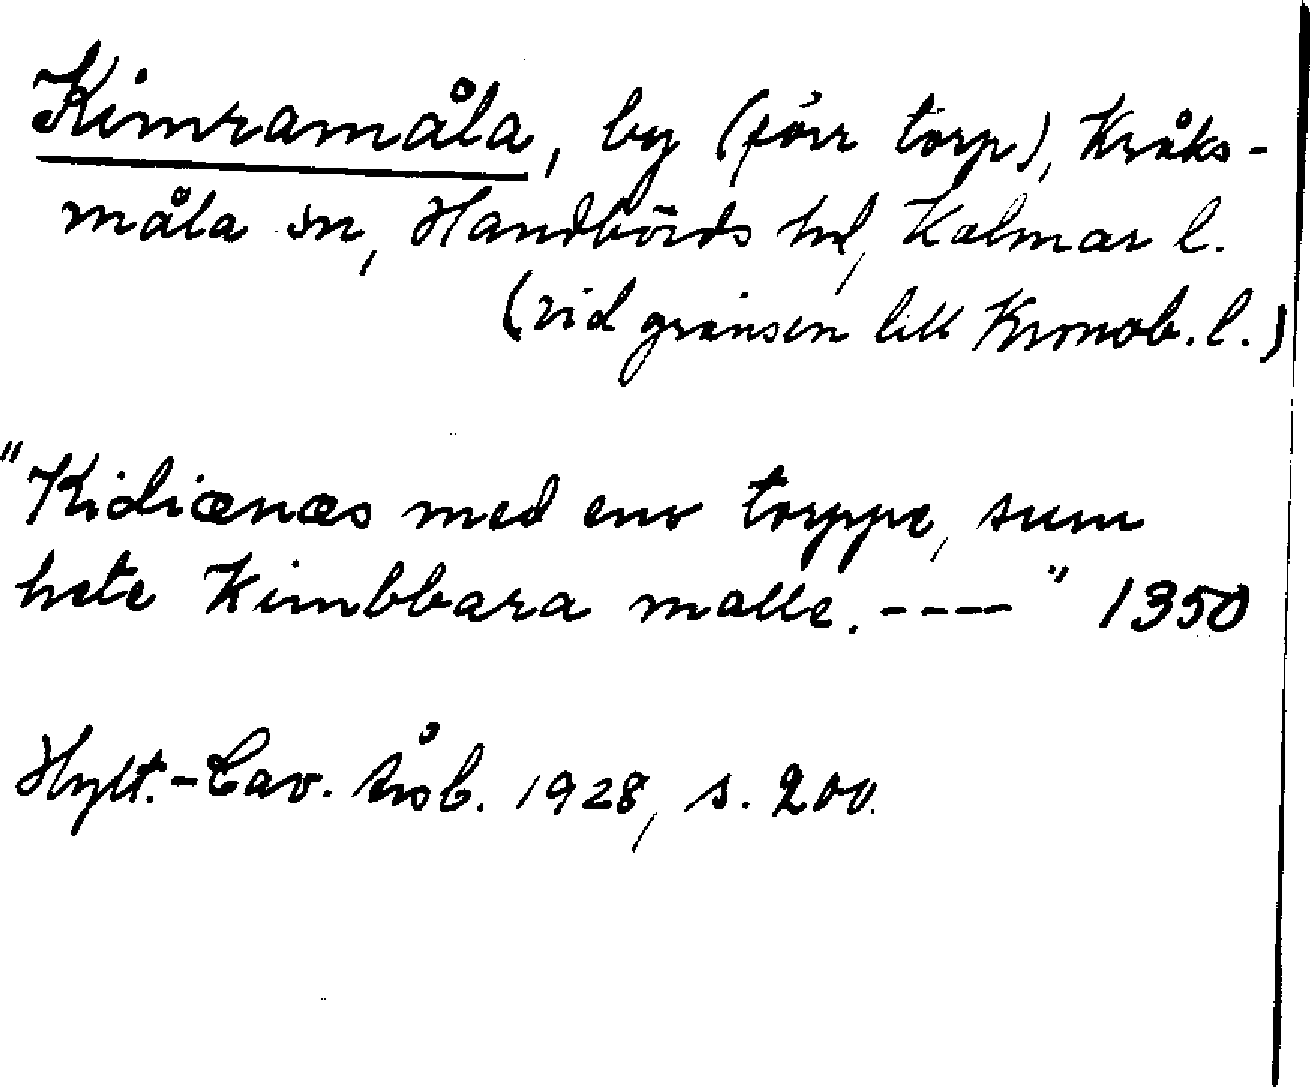 Kimramåla, by (förr torp), Kråks-
måla sn, Handbörds hd, Kalmar l.
(vid gränsen till Kronob. l.)
"Kidiænæs med eno torppe, sum
hete Kimbbara malle. ----" 1350
Hylt.-Cav. årsb. 1928, s. 200.